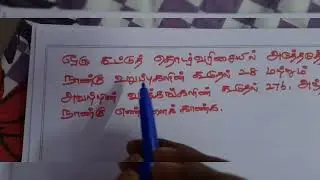 ஒரு கூட்டுத் தொடர்வரிசையில் அடுத்தடுத்த
நான்கு உறுப்புகளின் கூடுதல் 28 மற்றும்
அவற்றின் வர்க்கங்களின் கூடுதல் 276. அந்த
நான்கு எண்களைக் காண்க.